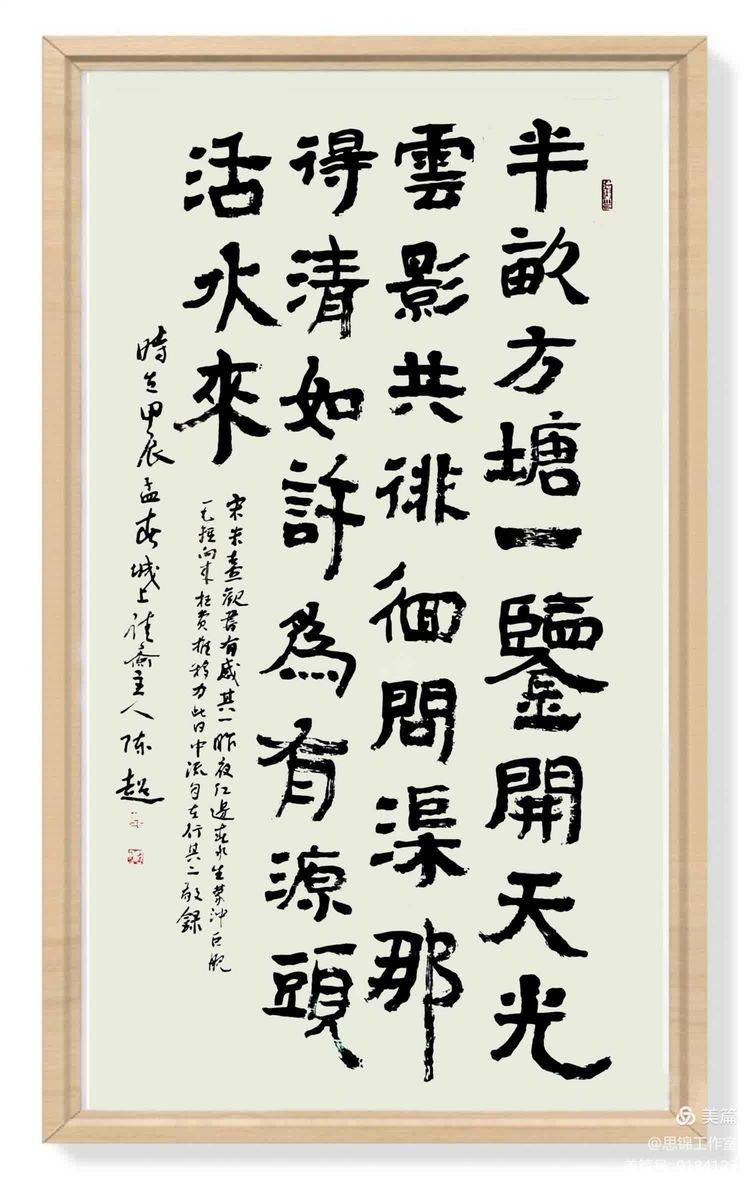 半畝方塘一鑒開天光
雲影共徘徊問渠那
得清如許為有源頭
活水來
宋朱熹觀書有感其一昨夜江邊春水生蒙沖巨艦
一毛輕向來枉費推移力此日中流自在行其二敬錄
時在甲辰孟春城上佳齋主人陳超
美篇
@思锦工作室